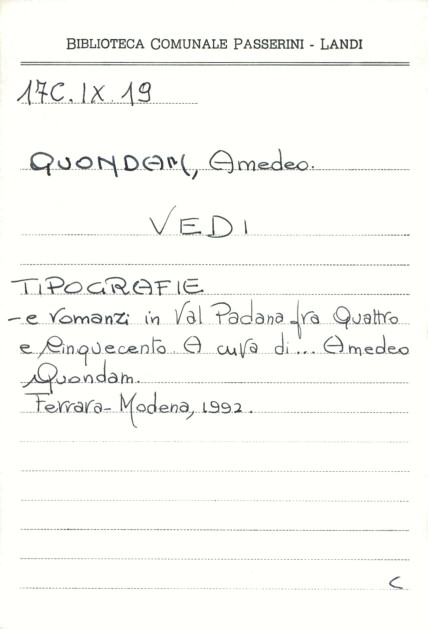 BIBLIOTECA COMUNALE PASSERINI - LANDI
17C.IX.19
QUONDAM, Amedeo.
VEDI
TIPOGRAFIE
- e romanzi in Val Padana fra Quattro
e Cinquecento. A cura di... Amedeo
Quondam.
Ferrara - Modena, 1992.
C